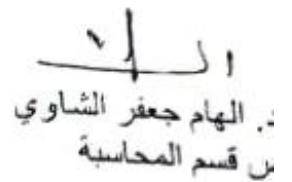 د. الهام جعفر الشاوي
قسم المحاسبة